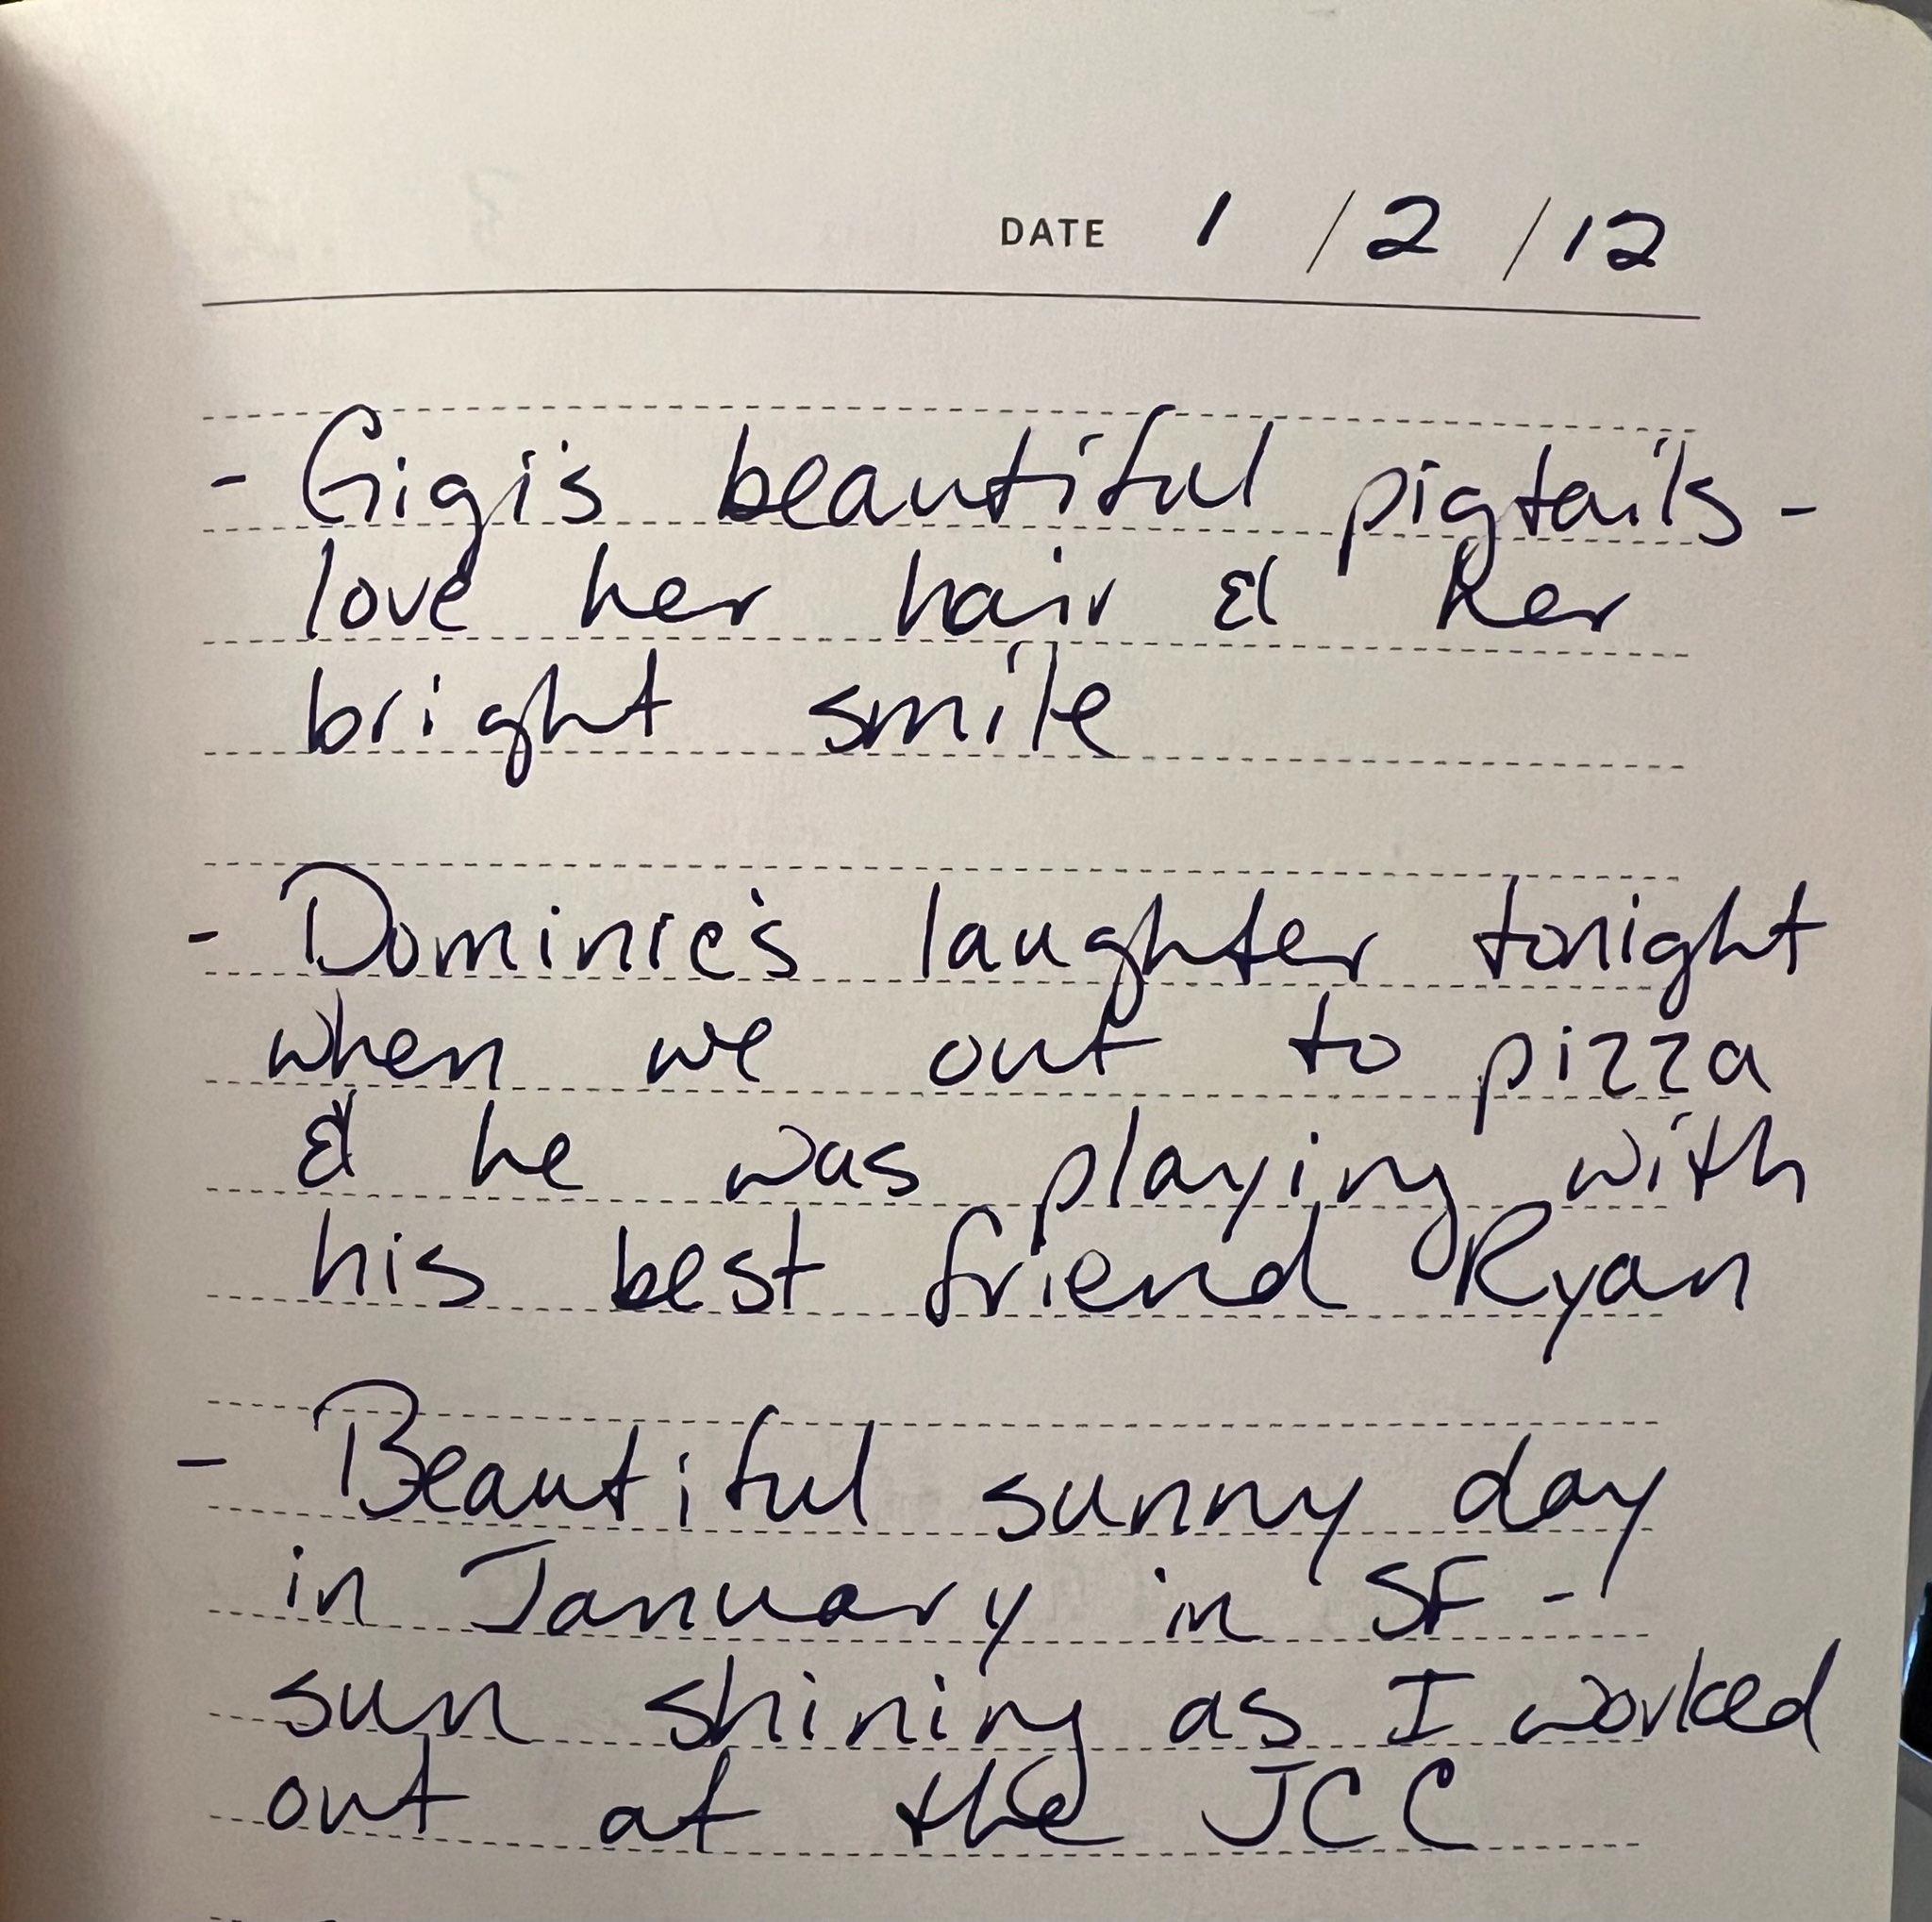 DATE 1 / 2 / 12
- Gigi's beautiful pigtails -
love her hair & her
bright smile
- Dominic's laughter tonight
when we out to pizza
& he was playing with
his best friend Ryan
- Beautiful sunny day
in January in SF -
sun shining as I worked
out at the JCC